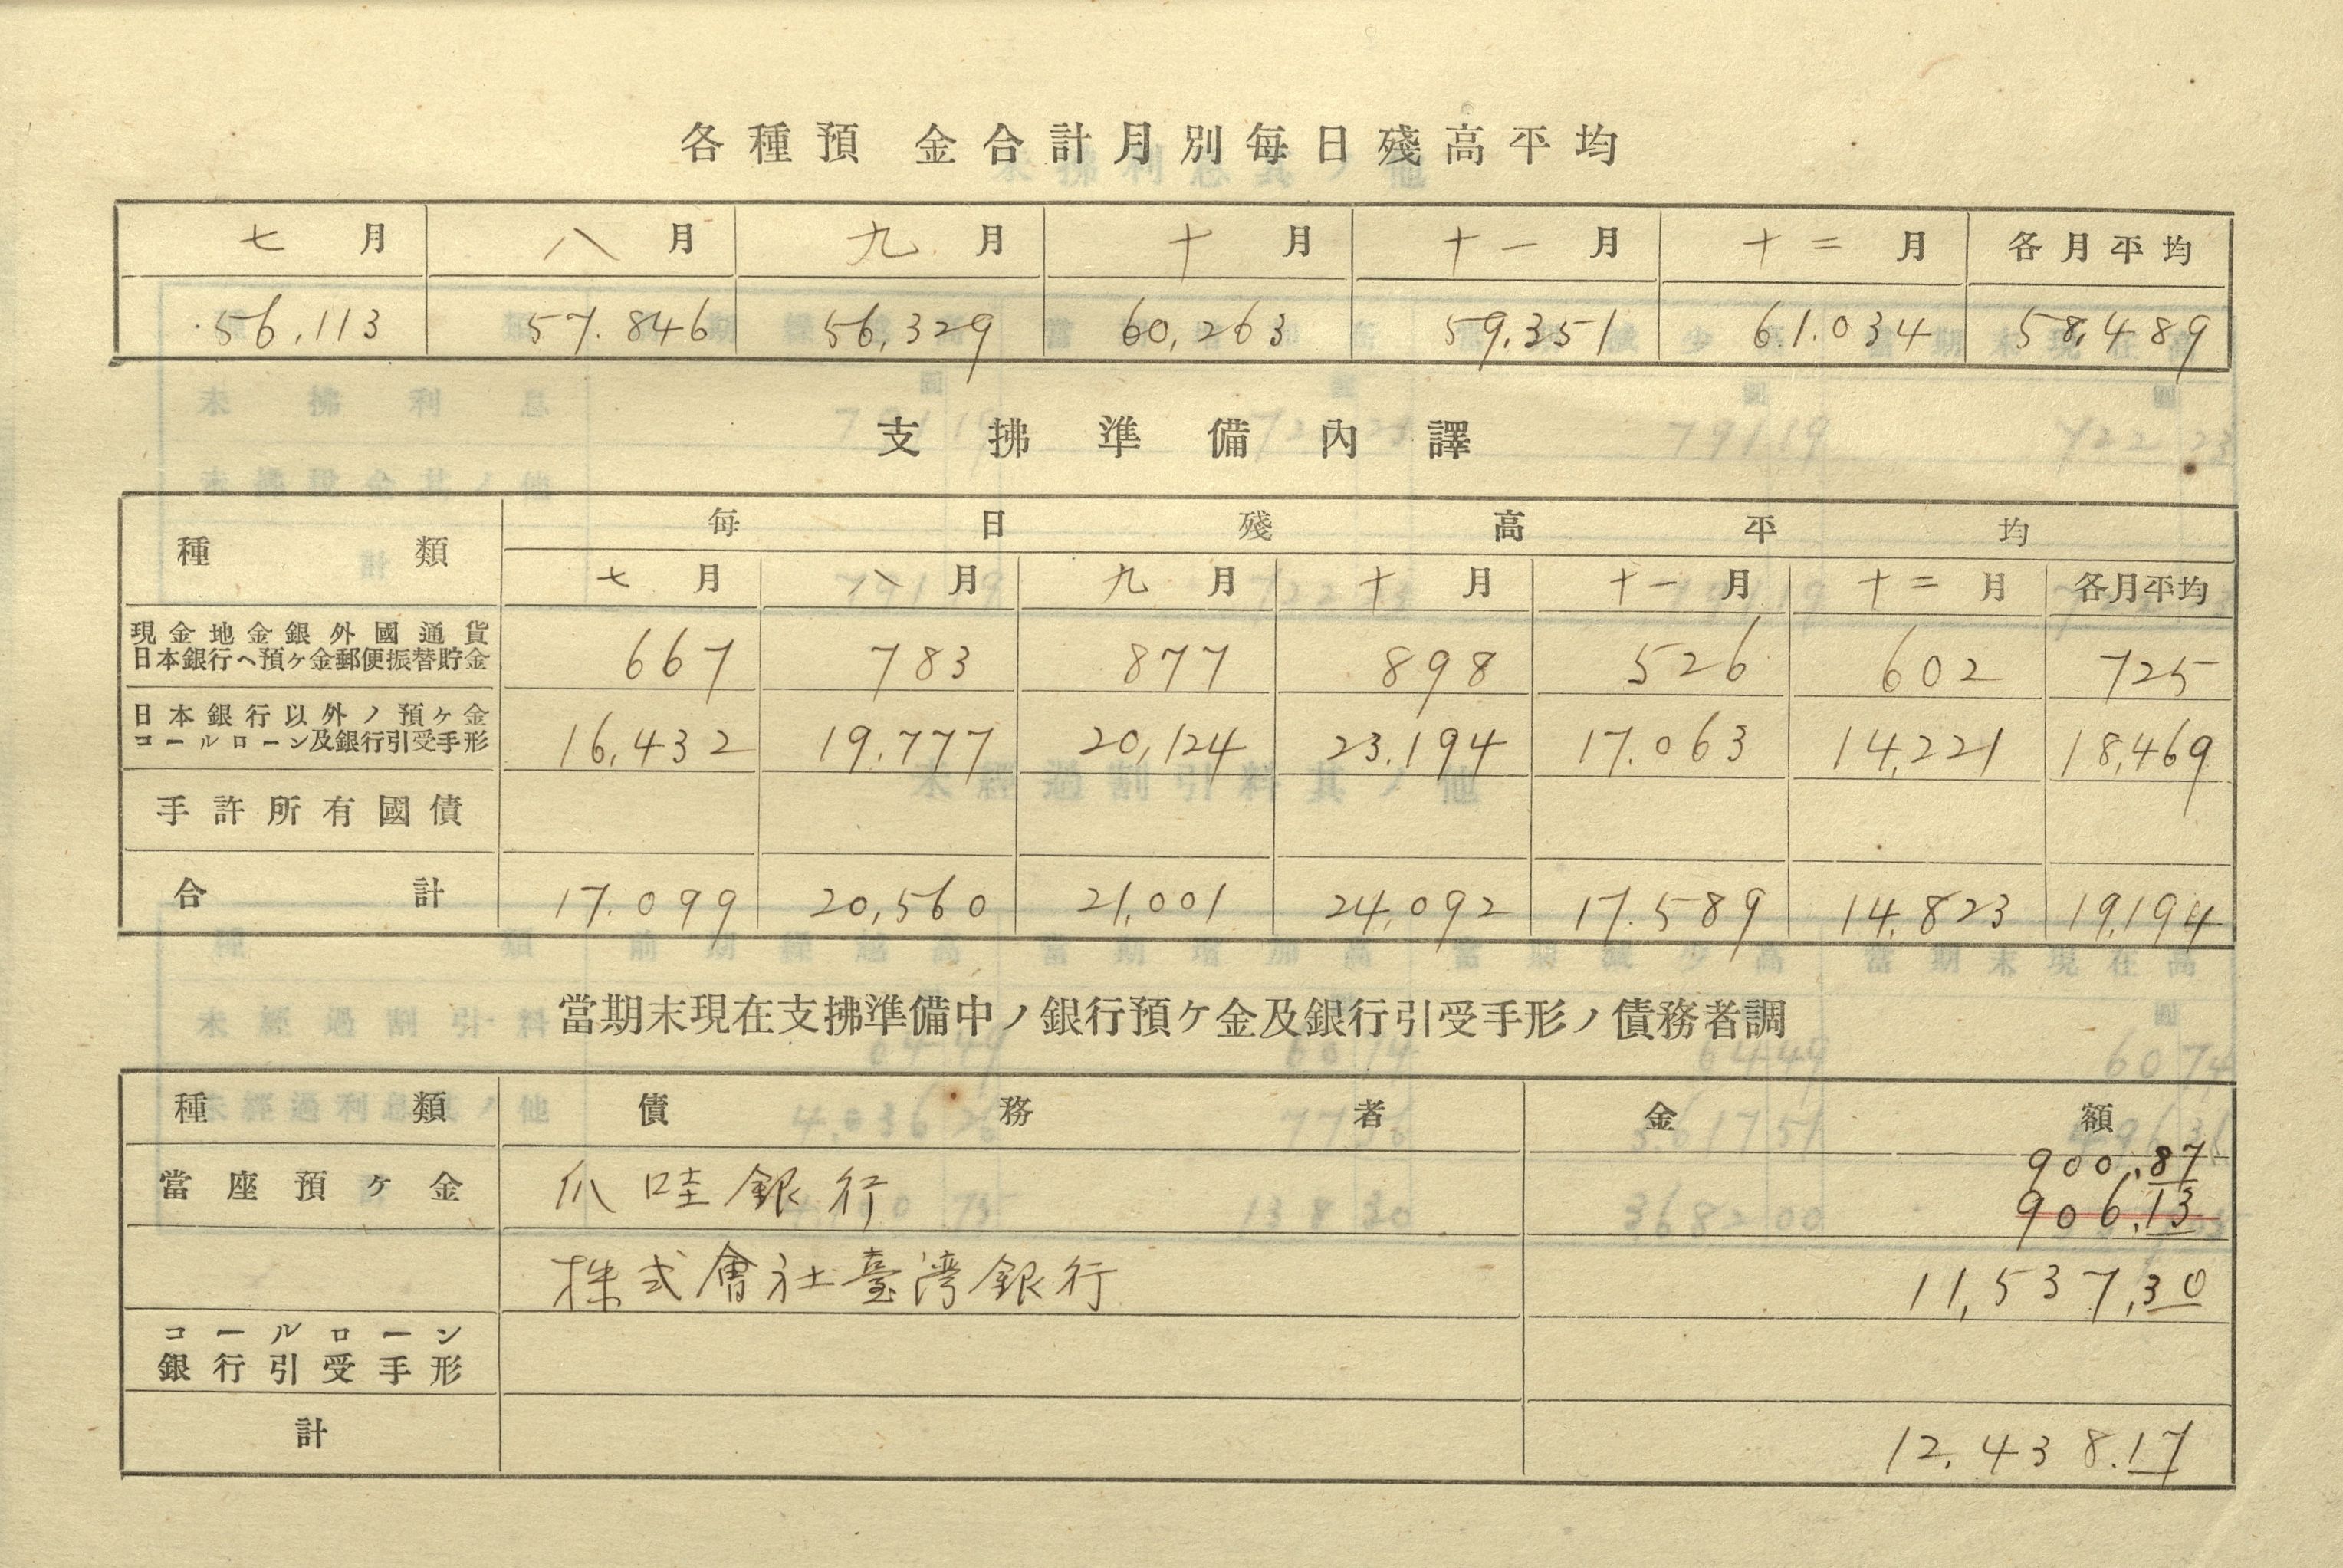 各種預金合計月別每日殘高平均
七月 八月 九月 十月 十一月 十二月 各月平均
56,113 57.846 56,329 60,263 59,351 61.034 58,489
支拂準備內譯
種類 每日殘高平均
七月 八月 九月 十月 十一月 十二月 各月平均
現金地金銀外國通貨
日本銀行ヘ預ヶ金郵便振替貯金 667 783 877 898 526 602 725
日本銀行以外ノ預ヶ金
コールローン及銀行引受手形 16,432 19.777 20,124 23.194 17.063 14,221 18,469
手許所有國債
合計 17.099 20,560 21,001 24,092 17.589 14.823 19,194
當期末現在支拂準備中ノ銀行預ケ金及銀行引受手形ノ債務者調
種類 債務者 金額
900.87
當座預ケ金 爪哇銀行 906.13
株式會社臺灣銀行 11,537,30
コールローン
銀行引受手形
計 12.438.17